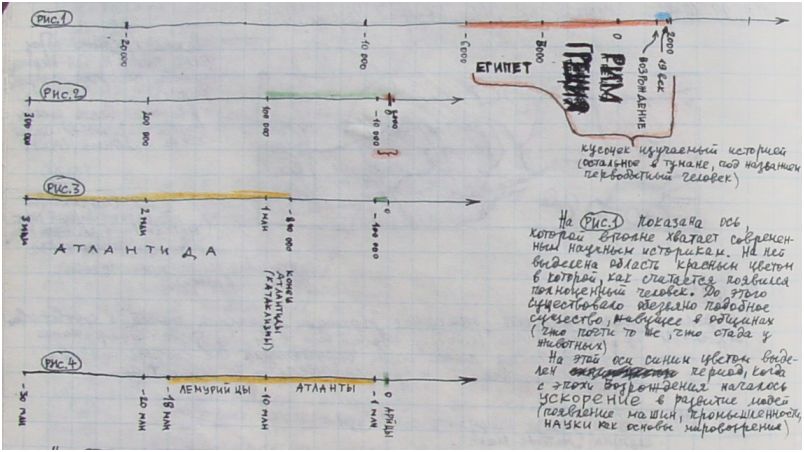 РИС.1
-20000
-10000
-6000
-3000
0
2000
19 ВЕК
ВОЗРОЖДЕНИЕ
ЕГИПЕТ
РИМ
ГРЕЦИЯ
кусочек изучаемый историей
(остальное в тумане, под названием
первобытный человек)
РИС.2
300 000
200 000
100 000
-10 000
0
2000
РИС.3
3 млн
2 млн
1 млн
-800 000
-100 000
0
АТЛАНТИДА
КОНЕЦ
АТЛАНТИДЫ
(КАТАКЛИЗМЫ)
РИС.4
-30 млн
-20 млн
-18 млн
-10 млн
-1 млн
0
ЛЕМУРИЙЦЫ
АТЛАНТЫ
АРИЙЦЫ
На РИС.1 показана ось,
которой вполне хватает современ-
ным научным историкам. На ней
выделена область красным цветом
в которой, как считается появился
полноценный человек. До этого
существовало обезьяно подобное
существо, живущее в общинах
(что почти то же, что стада у
животных)
На этой оси синим цветом выде-
лен период, когда
с эпохи Возрождения началось
УСКОРЕНИЕ в развитие людей
(появление машин, промышленности,
НАУКИ как основы мировоззрения)